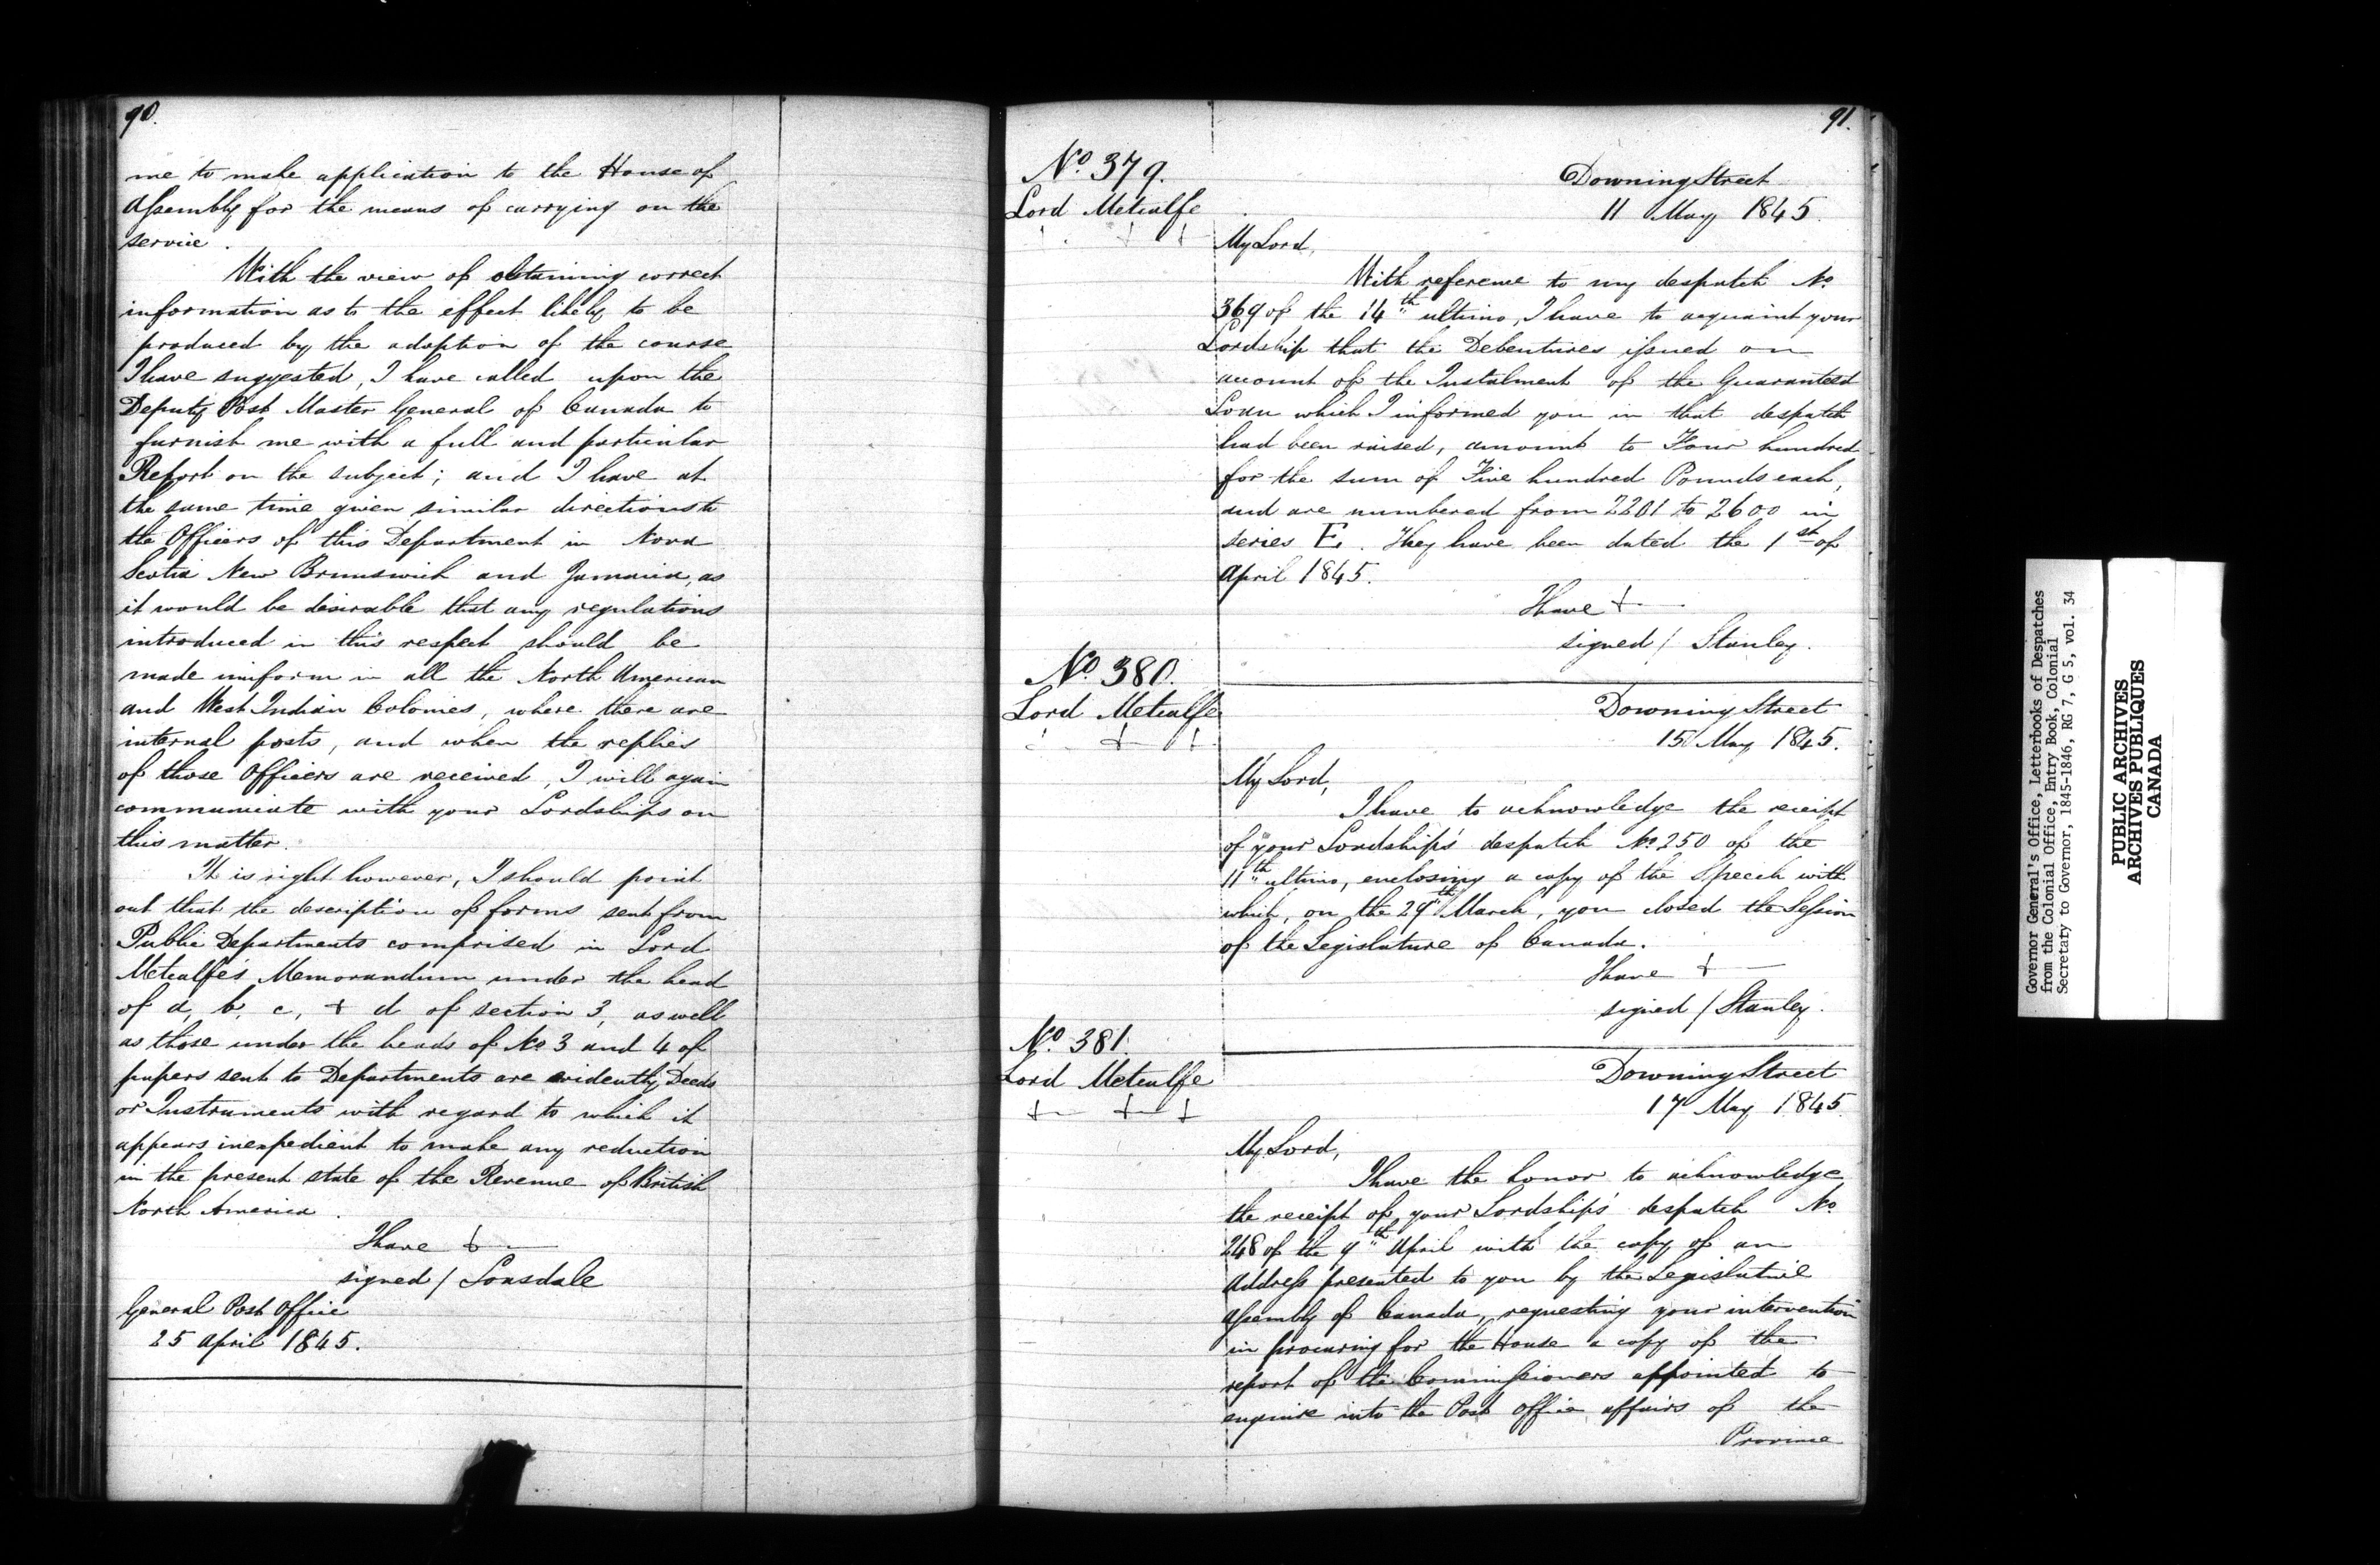 90.
me to make application to the House of
Assembly for the means of carrying on the
service.
With the view of obtaining correct
information as to the effect likely to be
produced by the adoption of the course
I have suggested, I have called upon the
Deputy Post Master General of Canada to
furnish me with a full and particular
Report on the subject; and I have at
the same time given similar directions to
the Officers of this Department in Nova
Scotia New Brunswick and Jamaica, as
it would be desirable that any regulations
introduced in this respect should be
made uniform in all the North American
and West Indian Colonies, where there are
internal posts, and when the replies
of those Officers are received, I will again
communicate with your Lordships on
this matter.
It is right however, I should point
out, that the description of forms sent from
Public Departments comprised in Lord
Metcalfe's Memorandum under the head
of a, b, c, + d of section 3, as well
as those under the heads of No 3 and 4 of
papers sent to Departments are evidently Deeds
or Instruments with regard to which it
appears inexpedient to make any reduction
in the present state of the Revenue of British
North America.
I have +
signed / Lonsdale
General Post Office
25 April 1845.
91.
No. 379.
Lord Metcalfe
Downing Street
11 May 1845.
My Lord,
With reference to my despatch No.
369 of the 14th ultimo, I have to acquaint your
Lordship that the Debentures issued on
account of the Instalment of the Guaranteed
Loan which I informed you in that despatch
had been raised, amount to Four hundred
for the sum of Five hundred Pounds each,
and are numbered from 2201 to 2600 in
series E. They have been dated the 1st of
April 1845.
I have +
signed / Stanley.
No. 380.
Lord Metcalfe
Downing Street
15 May 1845.
My Lord,
I have to acknowledge the receipt
of your Lordship's despatch No. 250 of the
11th ultimo, enclosing a copy of the Speech with
which, on the 29th March, you closed the Session
of the Legislature of Canada.
I have +
signed / Stanley.
No. 381.
Lord Metcalfe
+ + +
Downing Street
17 May 1845.
My Lord,
I have the honor to acknowledge
the receipt of your Lordship's despatch No.
248 of the 9th April with the copy of an
Address presented to you by the Legislative
Assembly of Canada, requesting your intervention
in procuring for the House a copy of the
report of the Commissioners appointed to
enquire into the Post Office affairs of the
Province
Governor General's Office, Letterbooks of Despatches
from the Colonial Office, Entry Book, Colonial
Secretary to Governor, 1845-1846, RG 7, G 5, vol. 34
PUBLIC ARCHIVES
ARCHIVES PUBLIQUES
CANADA